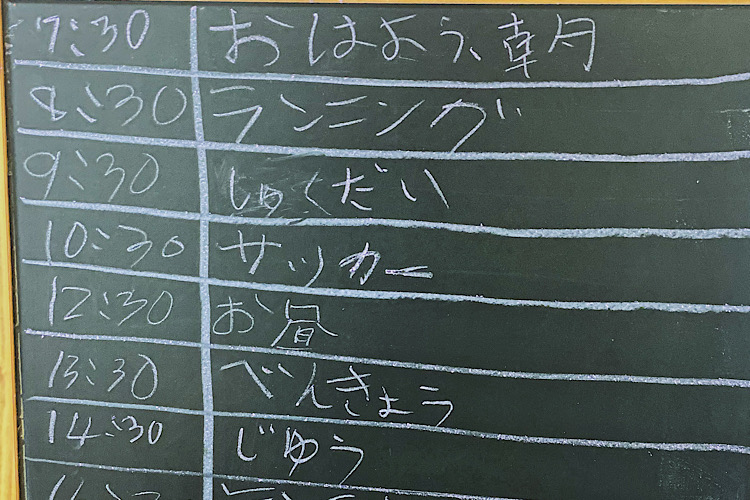 7:30 おはよう、朝
8:30 ランニング
9:30 しゅくだい
10:30 サッカー
12:30 お昼
13:30 べんきょう
14:30 じゆう